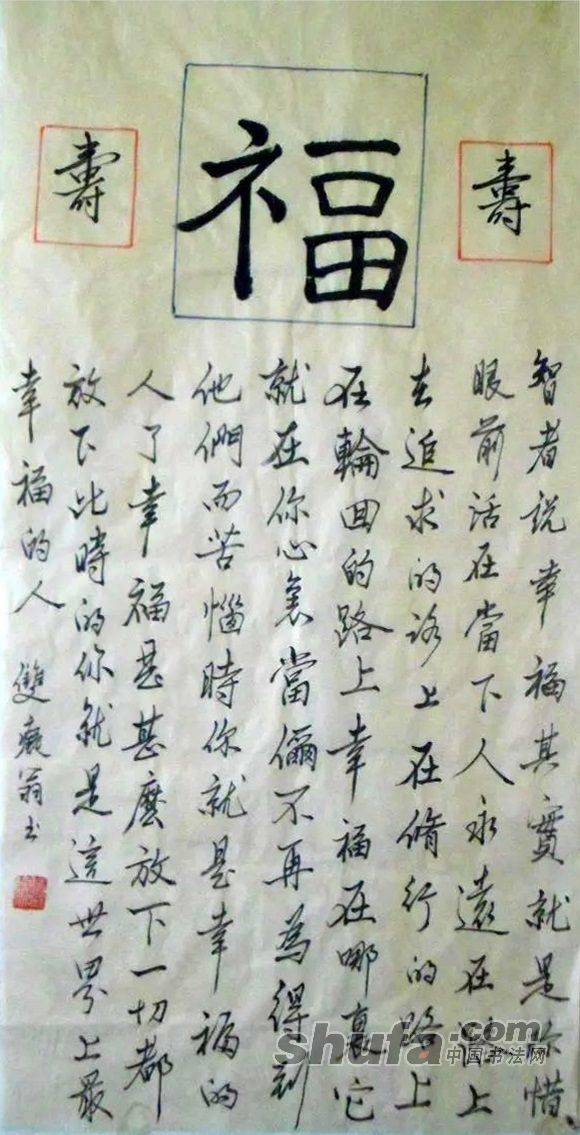 壽
福
壽
智者说幸福其實就是珍惜
眼前活在當下人永遠在路上
去追求的路上在脩行的路上
在輪回的路上幸福在哪裏它
就在你心裏當儞不再為得到
他們而苦惱時你就是幸福的
人了幸福是甚麼放下一切都
放下此時的你就是這世界上最
幸福的人 雙癡翁书
shufa.com
中国书法网